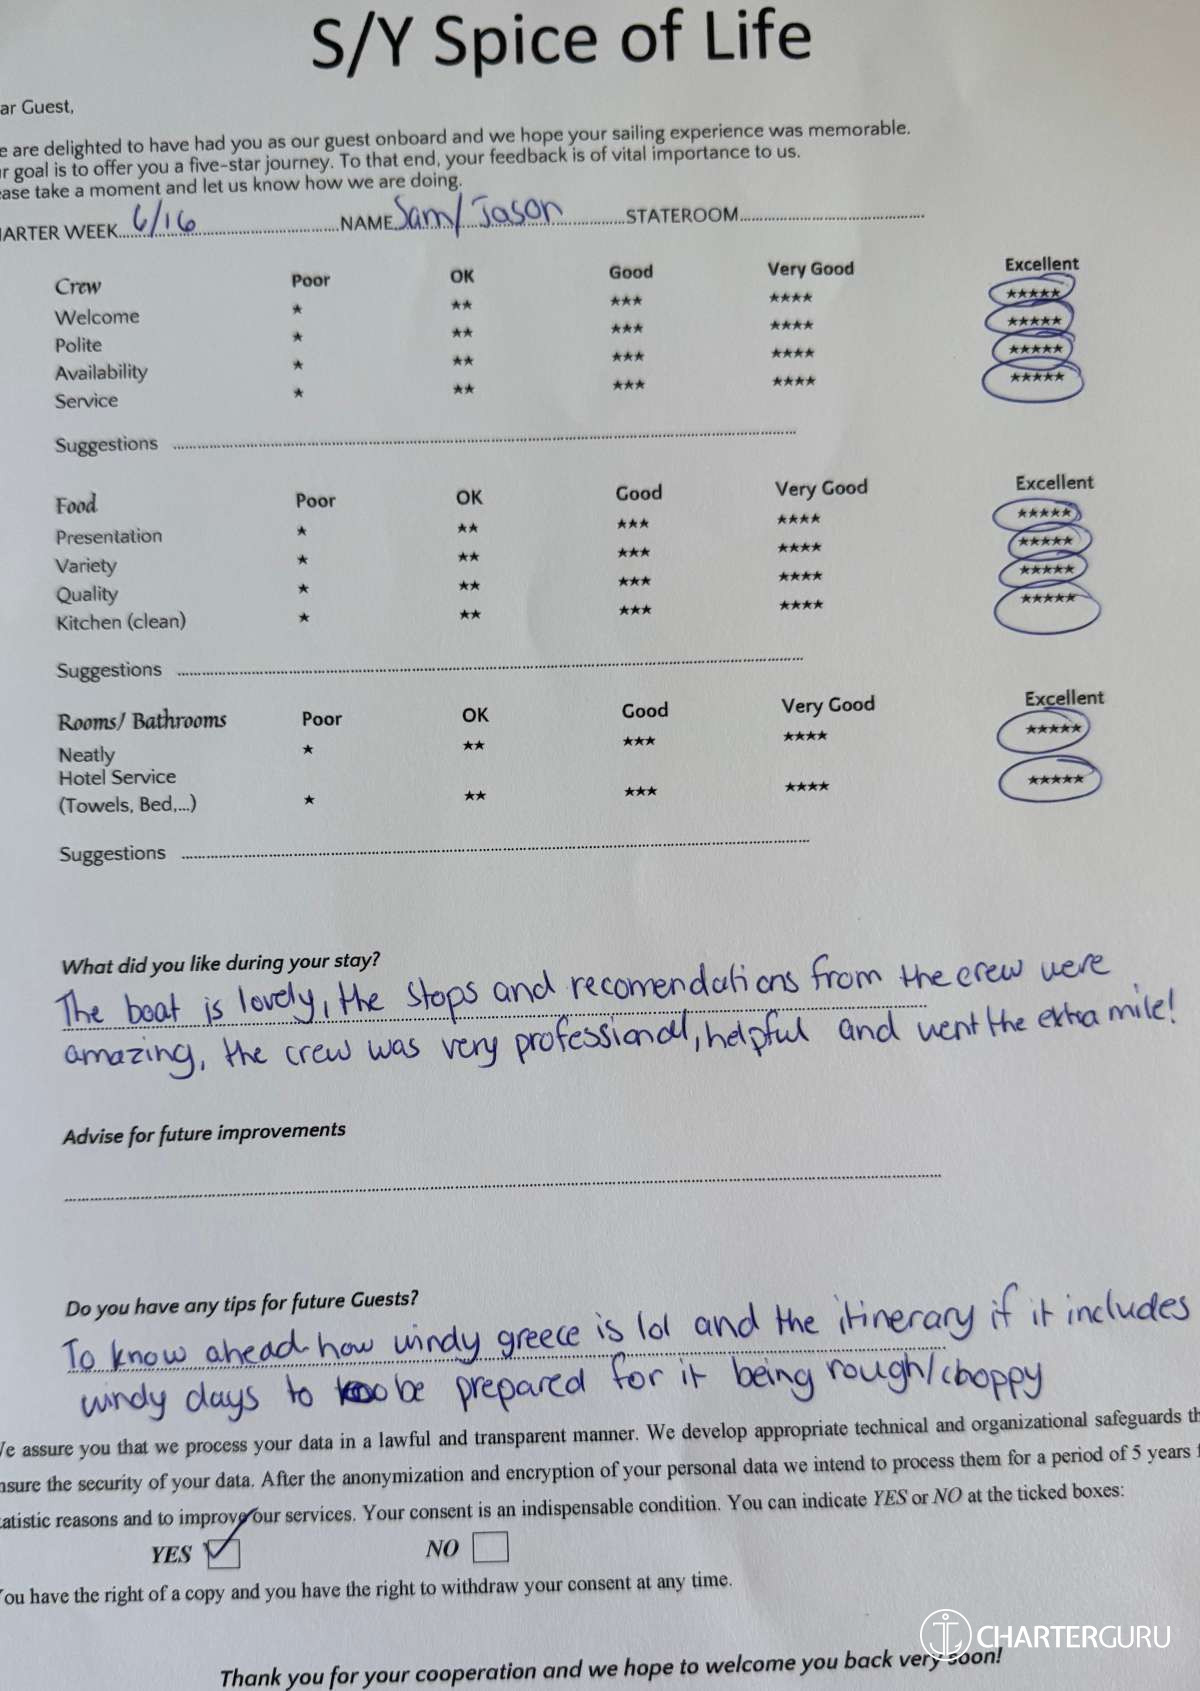 S/Y Spice of Life
ar Guest,
e are delighted to have had you as our guest onboard and we hope your sailing experience was memorable.
r goal is to offer you a five-star journey. To that end, your feedback is of vital importance to us.
ease take a moment and let us know how we are doing.
ARTER WEEK 6/16 NAME Sam/Jason STATEROOM
Crew Poor OK Good Very Good Excellent
Welcome ★ ★★ ★★★ ★★★★ ★★★★★
Polite ★ ★★ ★★★ ★★★★ ★★★★★
Availability ★ ★★ ★★★ ★★★★ ★★★★★
Service ★ ★★ ★★★ ★★★★ ★★★★★
Suggestions
Food Poor OK Good Very Good Excellent
Presentation ★ ★★ ★★★ ★★★★ ★★★★★
Variety ★ ★★ ★★★ ★★★★ ★★★★★
Quality ★ ★★ ★★★ ★★★★ ★★★★★
Kitchen (clean) ★ ★★ ★★★ ★★★★ ★★★★★
Suggestions
Rooms/ Bathrooms Poor OK Good Very Good Excellent
Neatly ★ ★★ ★★★ ★★★★ ★★★★★
Hotel Service
(Towels, Bed,...) ★ ★★ ★★★ ★★★★ ★★★★★
Suggestions
What did you like during your stay?
The boat is lovely, the stops and recomendations from the crew were
amazing, the crew was very professional, helpful and went the extra mile!
Advise for future improvements
Do you have any tips for future Guests?
To know ahead how windy greece is lol and the itinerary if it includes
windy days to be prepared for it being rough/choppy
e assure you that we process your data in a lawful and transparent manner. We develop appropriate technical and organizational safeguards th
nsure the security of your data. After the anonymization and encryption of your personal data we intend to process them for a period of 5 years f
tatistic reasons and to improve our services. Your consent is an indispensable condition. You can indicate YES or NO at the ticked boxes:
YES NO
You have the right of a copy and you have the right to withdraw your consent at any time.
CHARTERGURU
Thank you for your cooperation and we hope to welcome you back very soon!